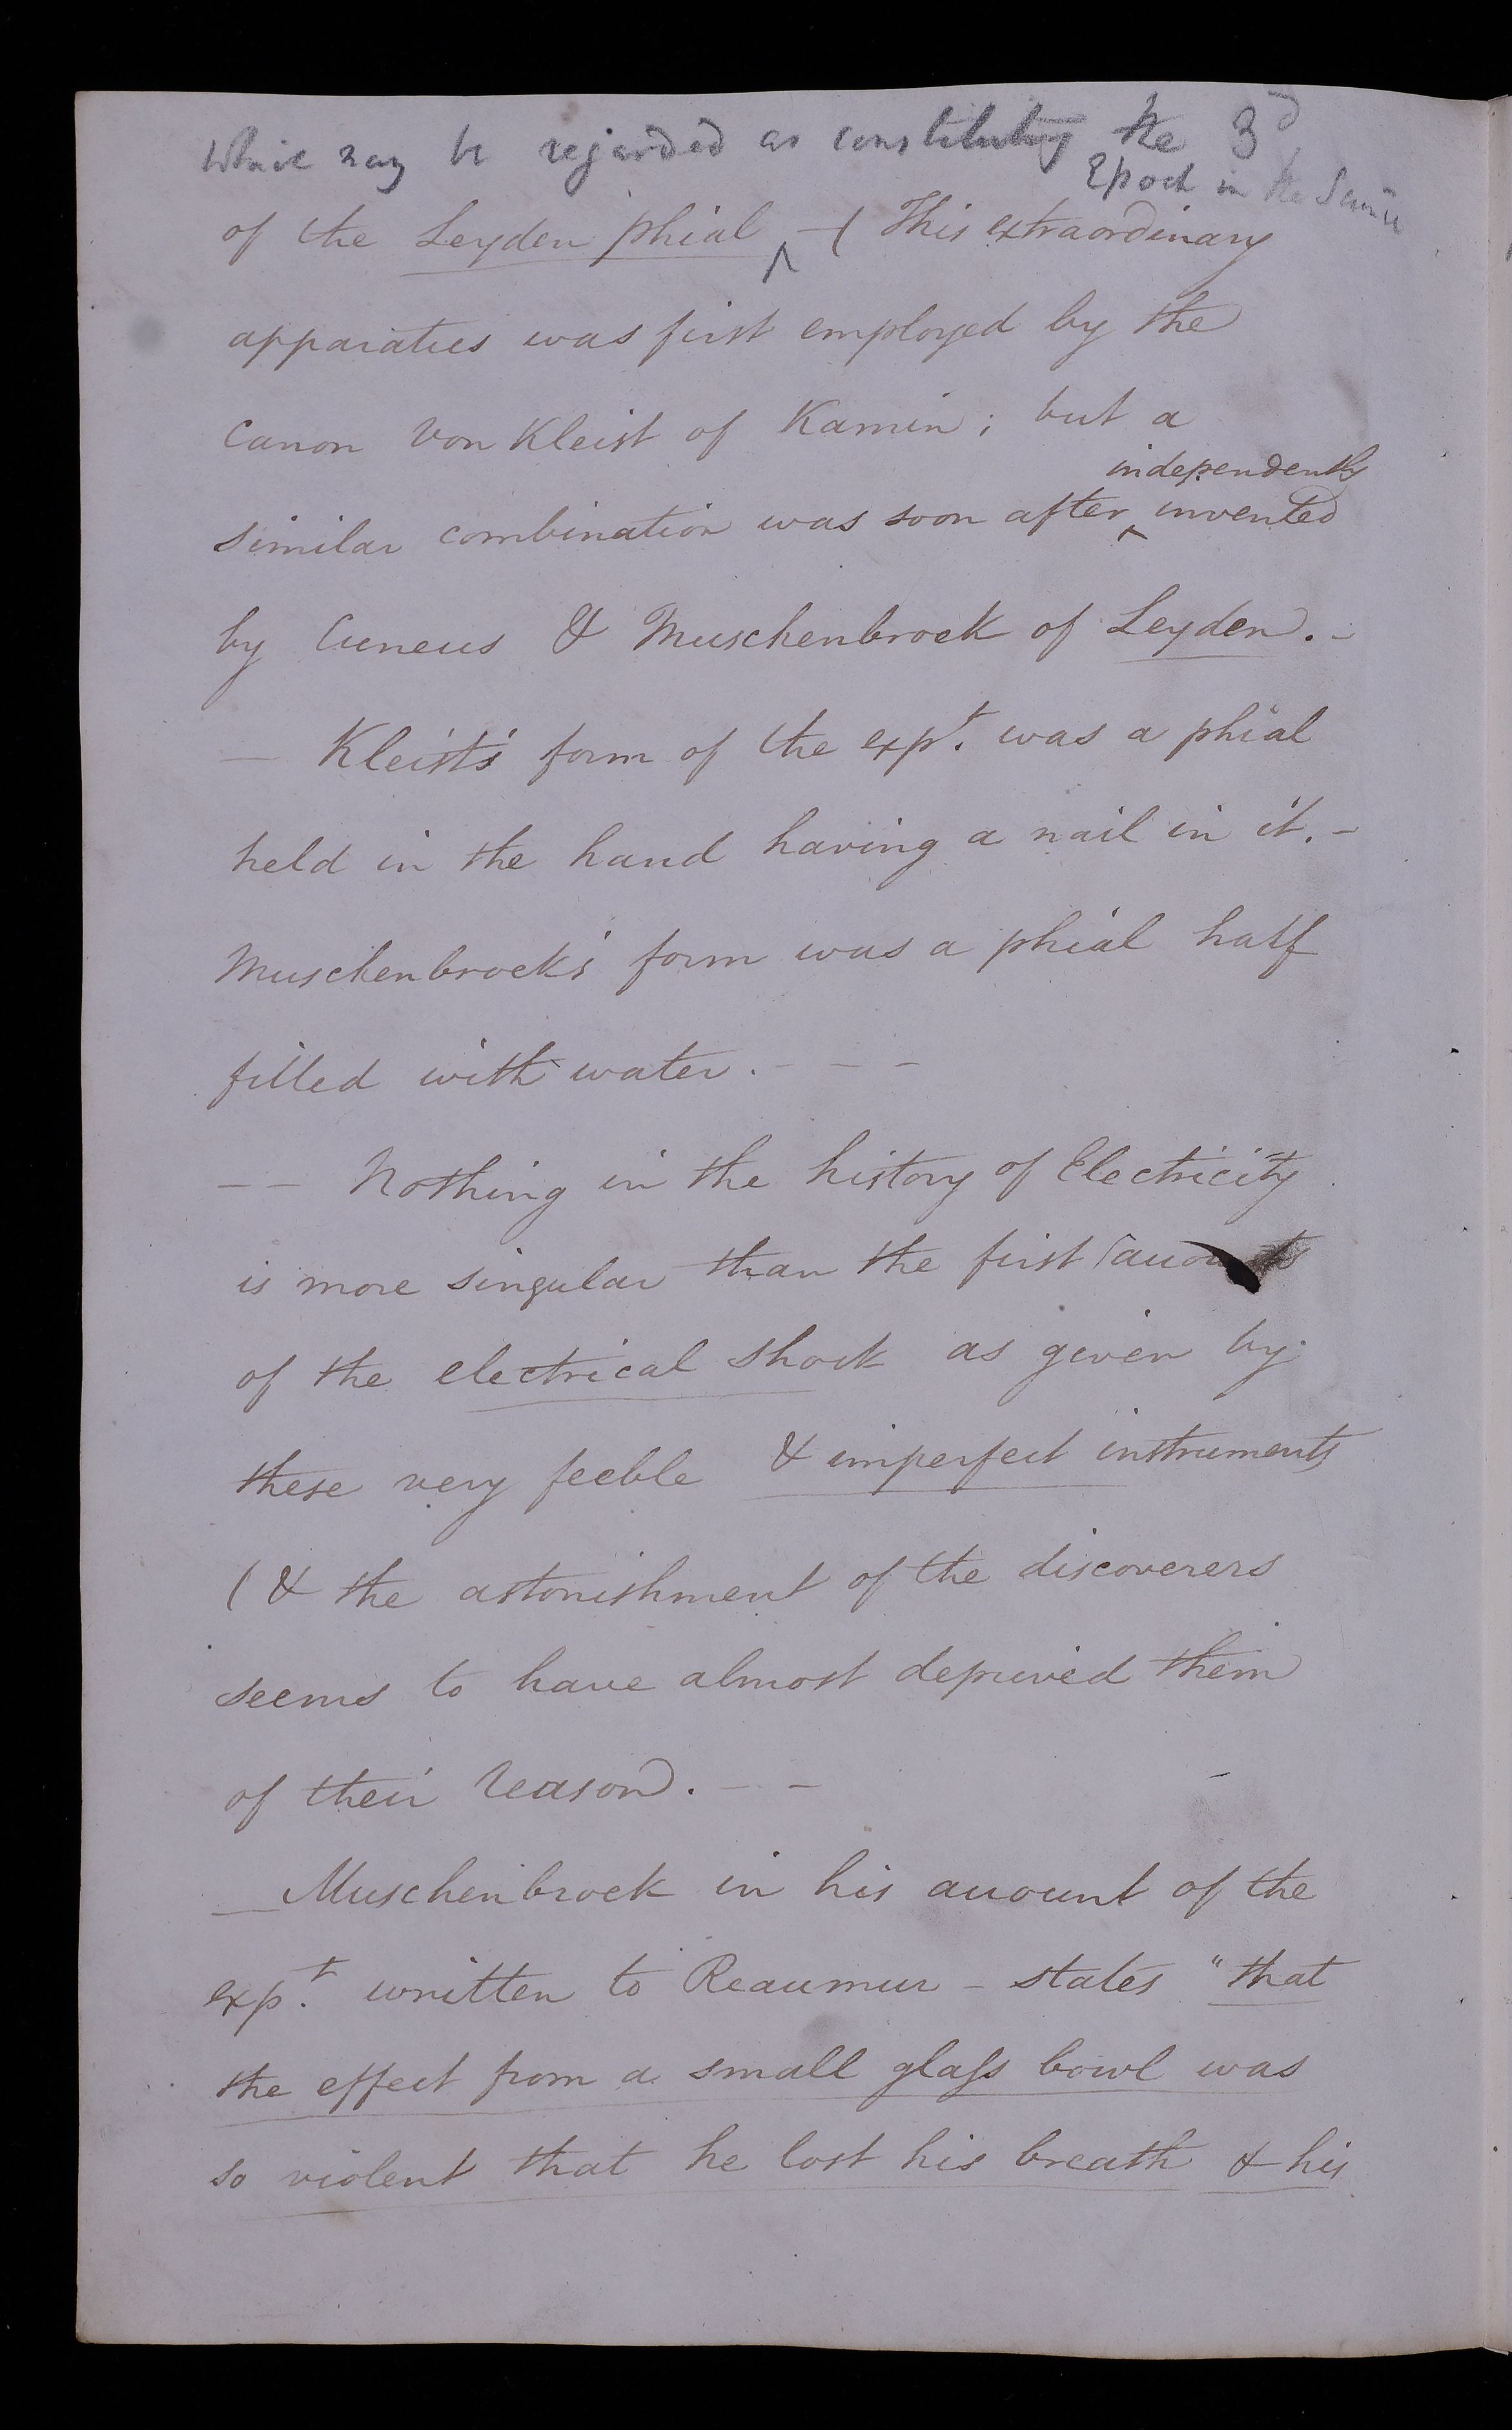 Which may be regarded as constituting the 3d
Epoch in the Science
of the Leyden phial ^ – ( This extraordinary
apparatus was first employed by the
Canon Von Kleist of Kamin; but a
independently
similar combination was soon after ^ invented
by Cuneus & Muschenbroek of Leyden. –
— Kleist's form of the expt. was a phial
held in the hand having a nail in it. –
Muschenbroek's form was a phial half
filled with water. – – –
– – Nothing in the history of Electricity
is more singular than the first accounts
of the electrical shock as given by
these very feeble & imperfect instruments
( & the astonishment of the discoverers
seems to have almost deprived them
of their reason. – –
— Muschenbroek in his account of the
expt. written to Reaumur – states "that
the effect from a small glass bowl was
so violent that he lost his breath & his